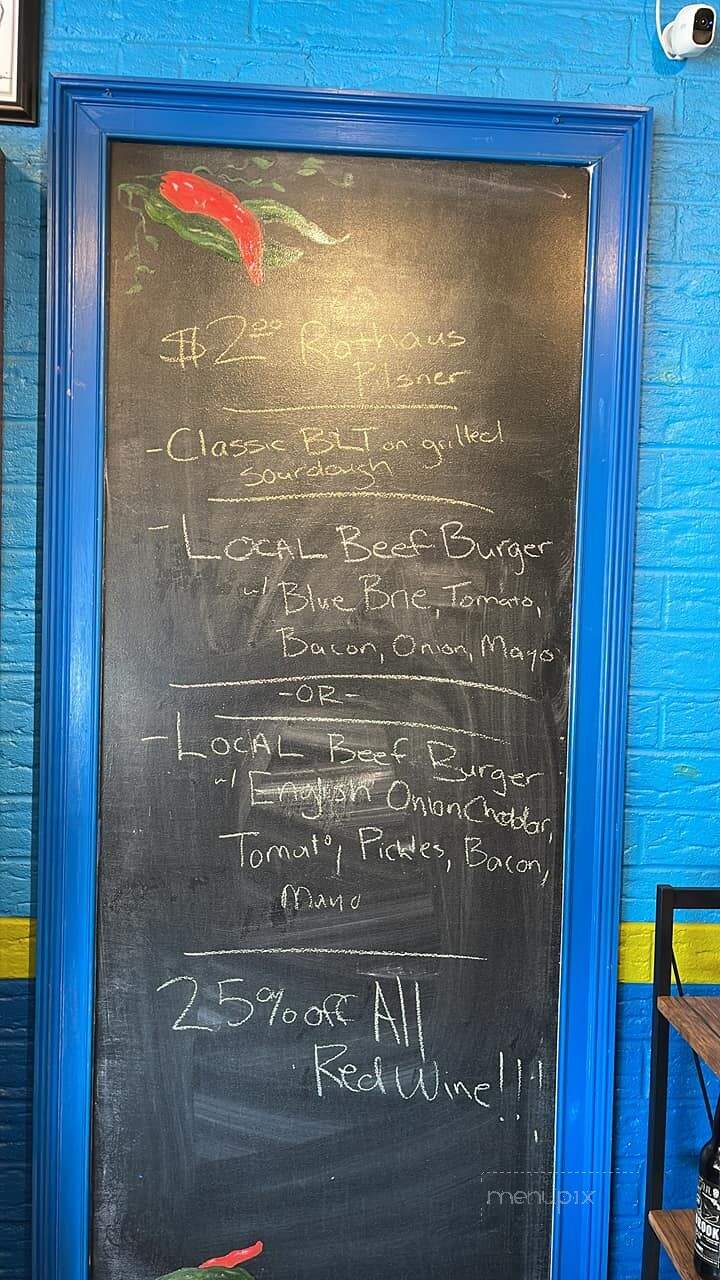 $2.00 Rothaus
Pilsner
- Classic BLT on grilled
sourdough
- LOCAL Beef Burger
w/ Blue Brie, Tomato,
Bacon, Onion, Mayo
-OR-
- LOCAL Beef Burger
w/ English Onion Cheddar,
Tomato, Pickles, Bacon,
Mayo
25% off All
Red Wine!!!
menupix